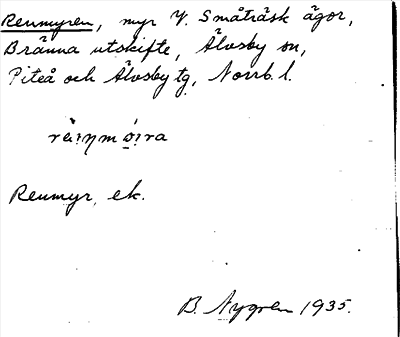 Renmyren, myr V. Småträsk ägor,
Bränna utskifte, Älvsby sn,
Piteå och Älvsby tg, Norrb. l.
Renmyr, ek.
B. Nygren 1935.